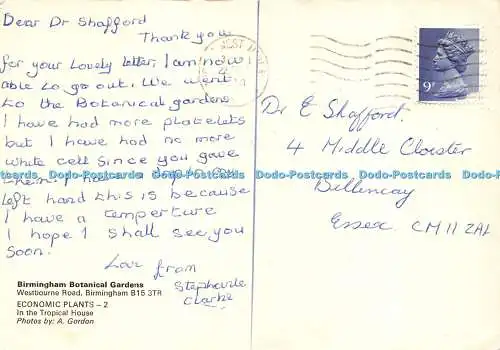 Dear Dr Shafford
Thank you
for your Lovely letter. I am now
able to go out. We went
to the Botanical gardens
I have had more platelets
but I have had no more
white cell since you gave
them. I have a
left hand this is because
I have a temperture
I hope I shall see you
soon.
Love from
Stephanie
Clarke
Birmingham Botanical Gardens
Westbourne Road, Birmingham B15 3TR
ECONOMIC PLANTS – 2
In the Tropical House
Photos by: A. Gordon
9P
Dr E Shafford,
4 Middle Cloister
Billericay
Essex CM11 2AL
Dodo-Postcards Dodo-Postcards Dodo-Postcards Dodo-Postcards